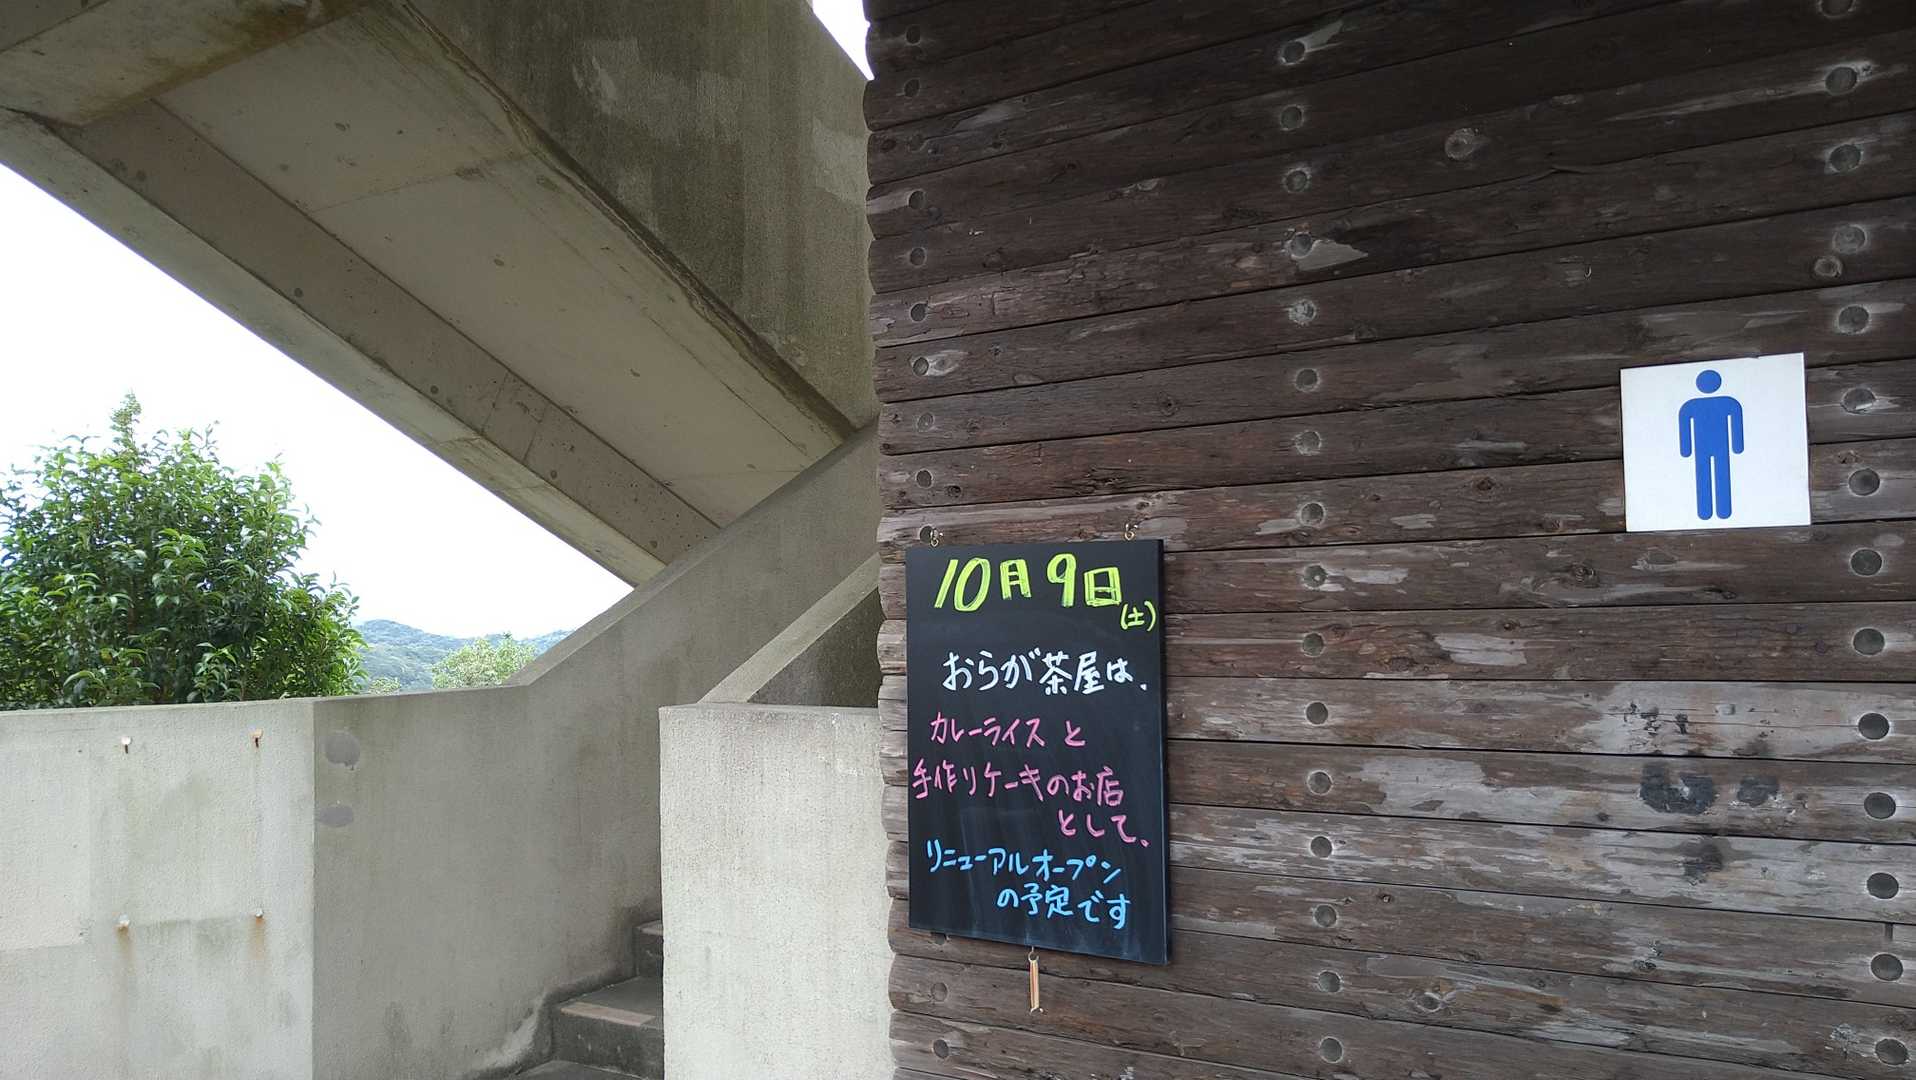 10月9日
(土)
おらが茶屋は、
カレーライスと
手作りケーキのお店
として、
リニューアルオープン
の予定です